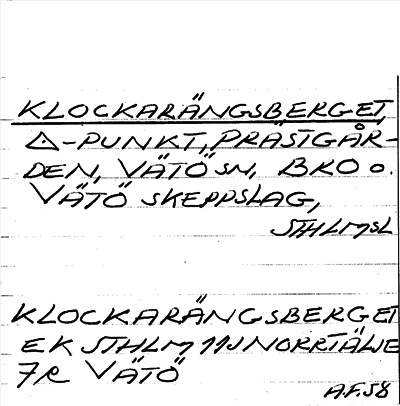 KLOCKARÄNGSBERGET,
△-PUNKT, PRÄSTGÅR-
DEN, VÄTÖ SN, BRO o.
VÄTÖ SKEPPSLAG,
STHLMSL
KLOCKARÄNGSBERGET
EK STHLM 11J NORRTÄLJE
7R VÄTÖ
A.F.58